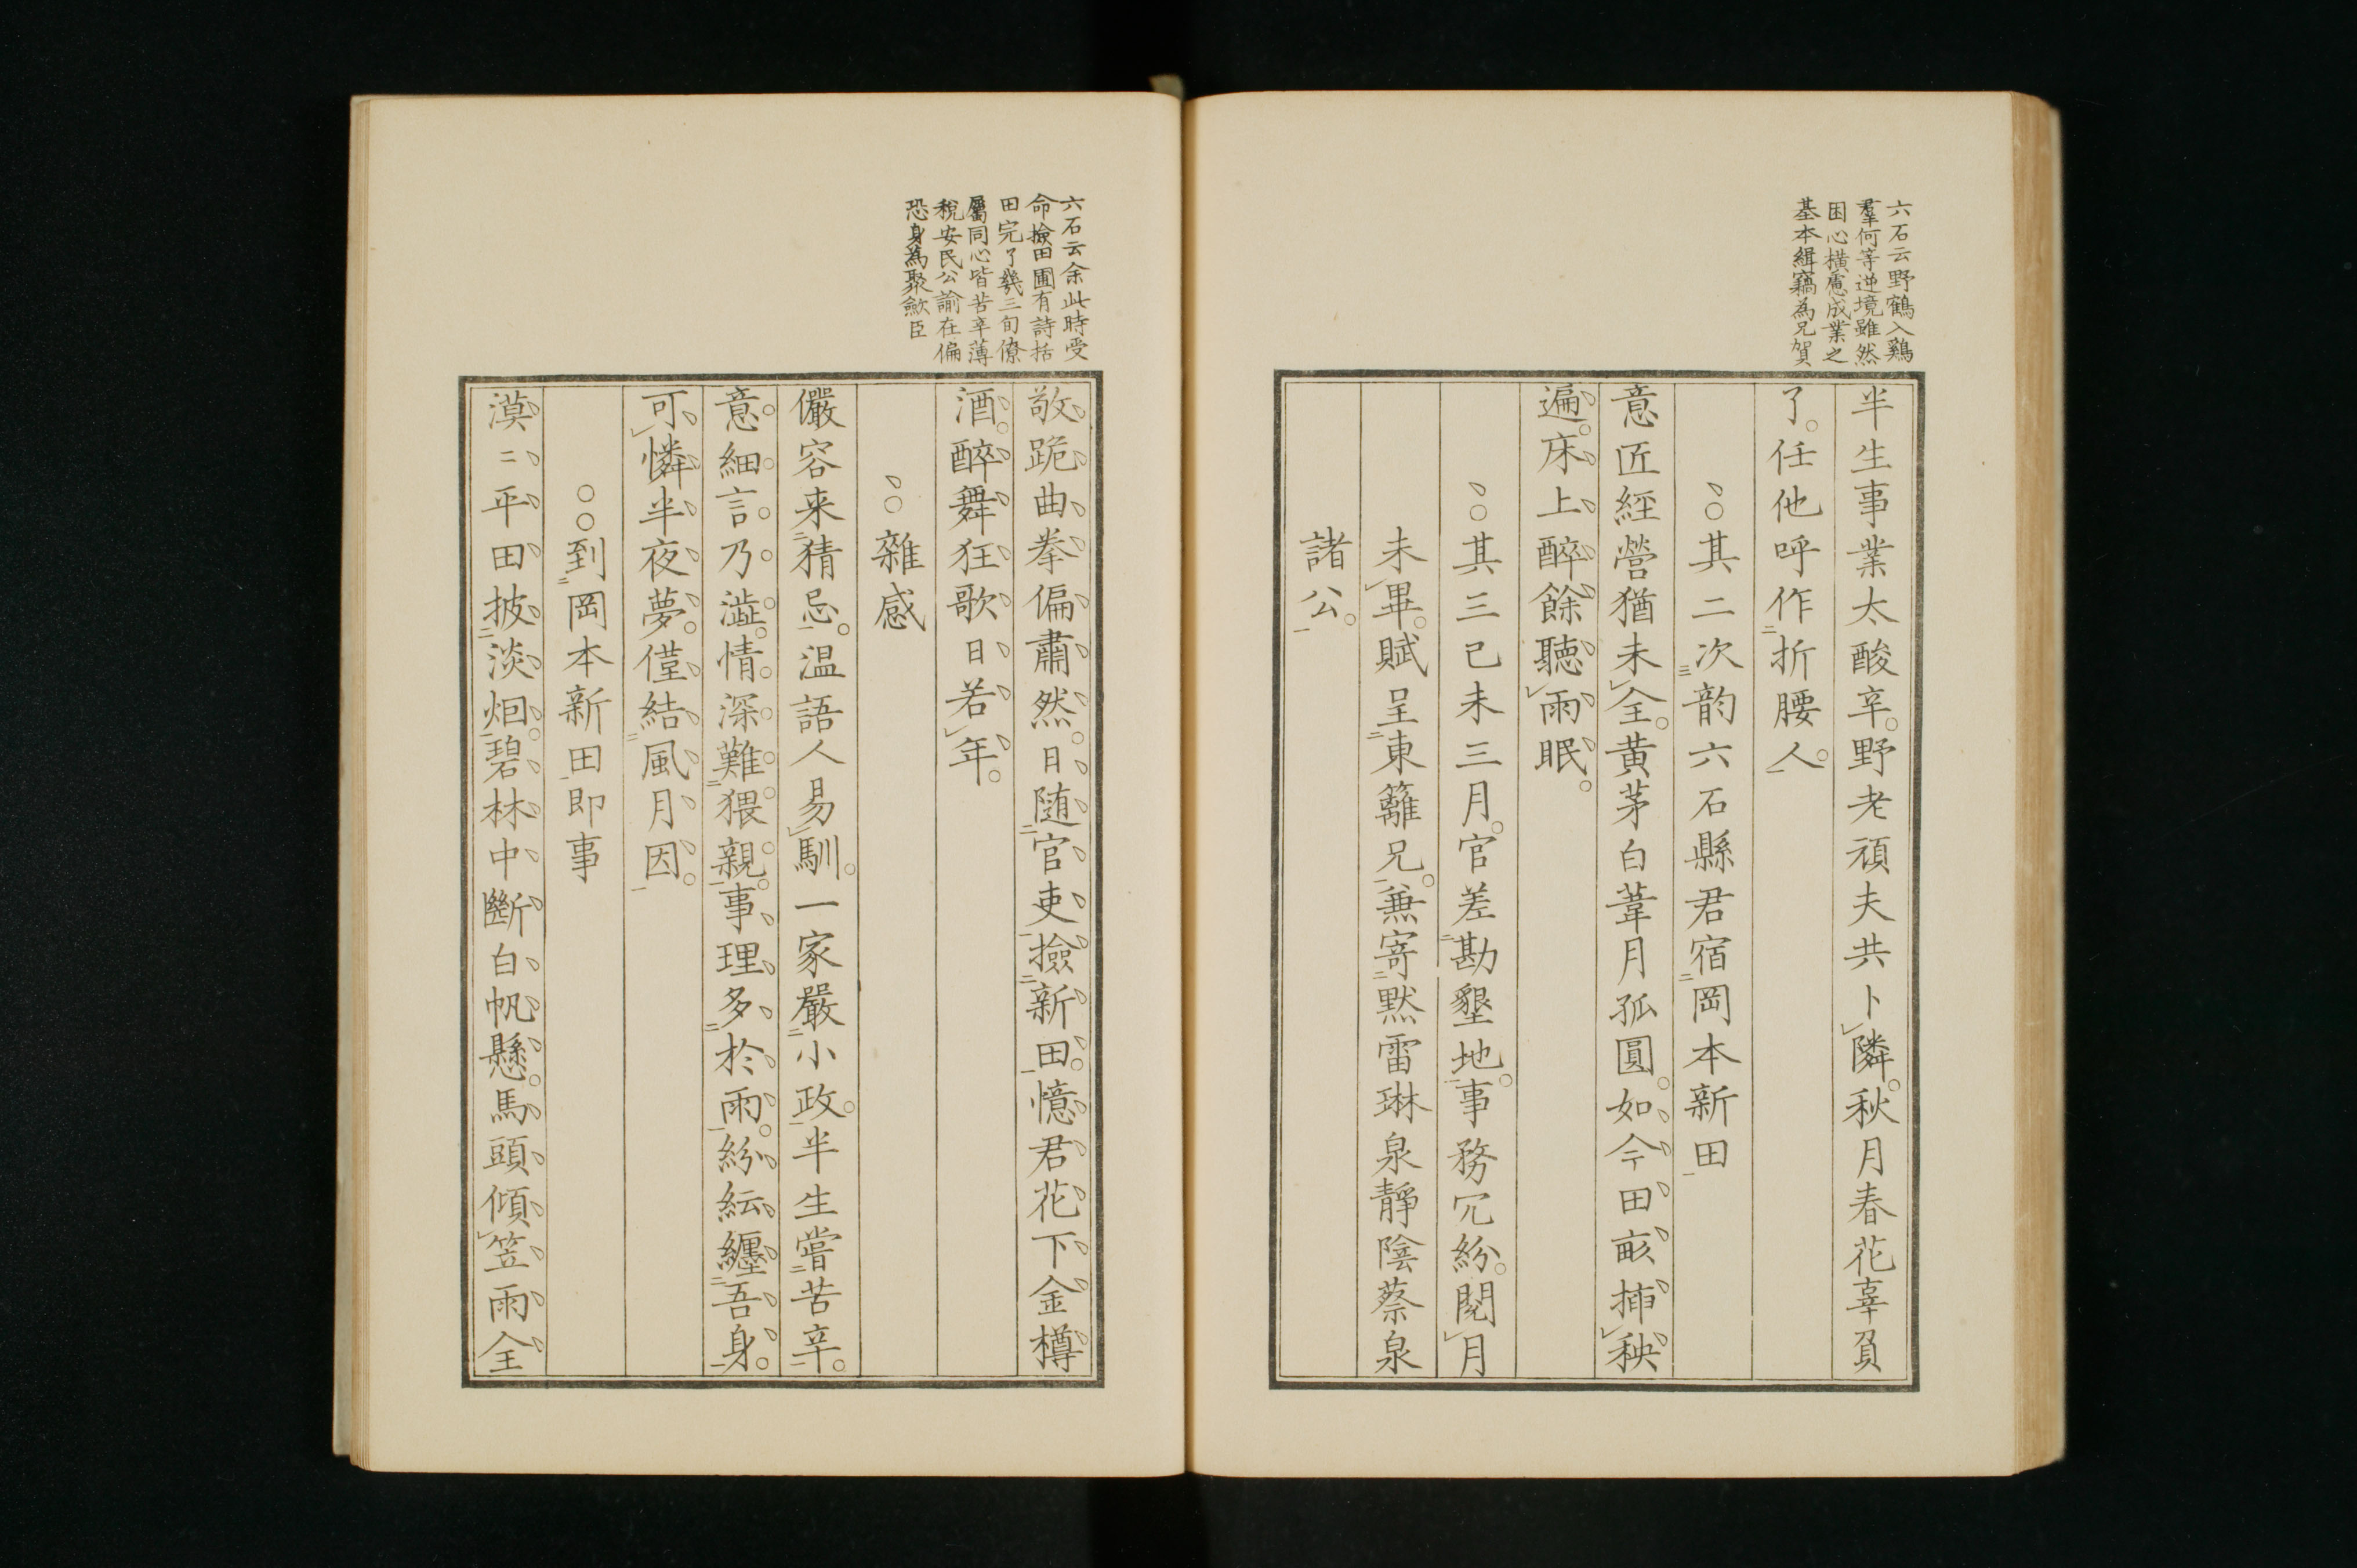 六石云野鶴入鷄
羣何等逆境雖然
困心横慮成業之
基本緝竊為兄賀
半生事業太酸辛。野老頑夫共卜隣。秋月春花辜負
了。任他呼作折腰人。
其二次韵六石縣君宿岡本新田
意匠經營猶未全。黄茅白葦月孤圓。如今田畝挿秧
遍。床上醉餘聽雨眠。
其三己未三月。官差勘墾地。事務冗紛。閲月
未畢。賦呈東籬兄。兼寄黙雷琳泉靜陰蔡泉
諸公。
六石云余此時受
命撿田圃有詩括
田完了幾三旬僚
屬同心皆苦辛薄
稅安民公諭在偏
恐身為聚歛臣
敬跪曲拳偏肅然。日随官吏撿新田。憶君花下金樽
酒。醉舞狂歌日若年。
雜感
儼容来猜忌。温語人易馴。一家嚴小政。半生嘗苦辛。
意細言乃澁。情深難猥親。事理多於雨。紛紜纒吾身。
可憐半夜夢。僅結風月因。
到岡本新田即事
漠〻平田披淡烟。碧林中斷白帆懸。馬頭傾笠雨全